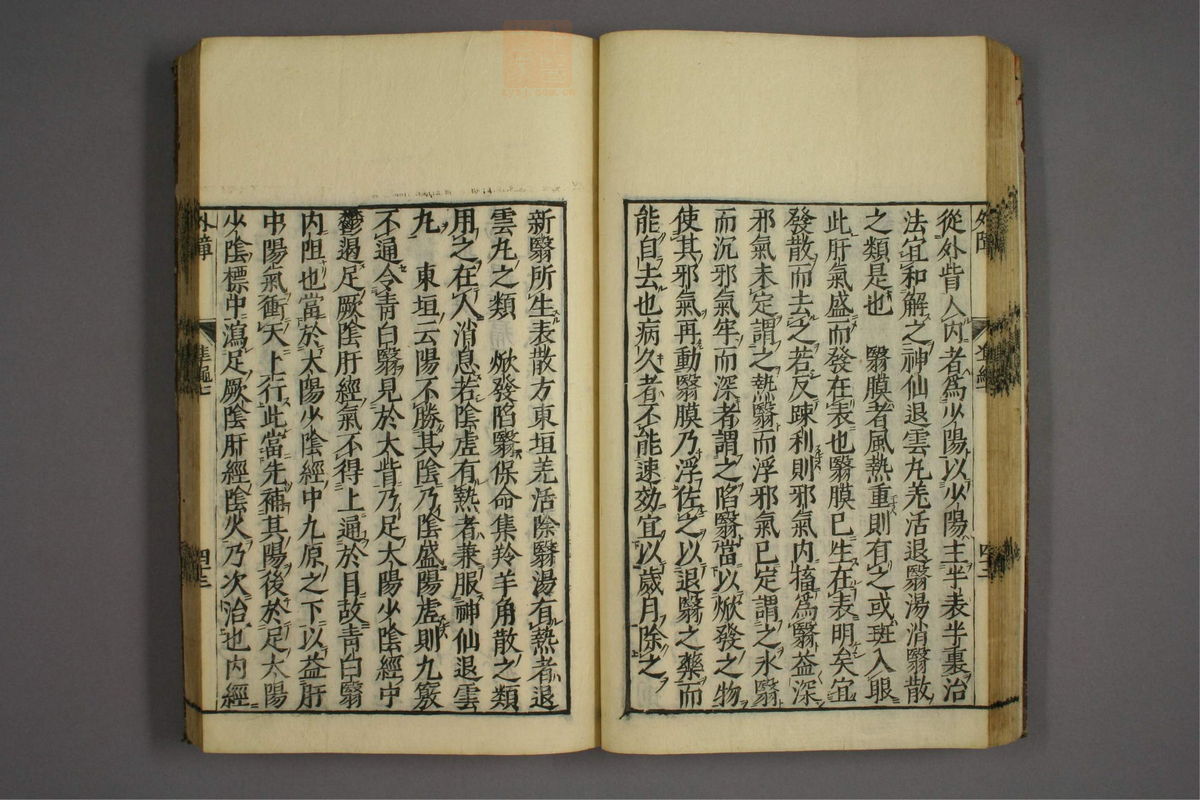 從外眥入內者爲少陽以少陽主半表半裏治
法宜和解之神仙退雲丸羌活退翳湯消翳散
之類是也　翳膜者風熱重則有之或斑入眼
此肝氣盛而發在表也翳膜已生在表明矣宜
發散而去之若反疎利則邪氣內搐爲翳益深
邪氣未定謂之熱翳而浮邪氣已定謂之氷翳
而沉邪氣牢而深者謂之陷翳當以焮發之物
使其邪氣再動翳膜乃浮佐之以退翳之藥而
能自去也病久者不能速効宜以歲月除之
新翳所生表散方東垣羌活除翳湯有熱者退
雲丸之類　焮發陷翳保命集羚羊角散之類
用之在人消息若陰虛有熱者兼服神仙退雲
丸　東垣云陽不勝其陰乃陰盛陽虛則九竅
不通令青白翳見於太眥乃足太陽少陰經中
鬱遏足厥陰肝經氣不得上通於目故青白翳
內阻也當於太陽少陰經中九原之下以益肝
中陽氣衝天上行此當先補其陽後於足太陽
少陰標中瀉足厥陰肝經陰火乃次治也內經
外障